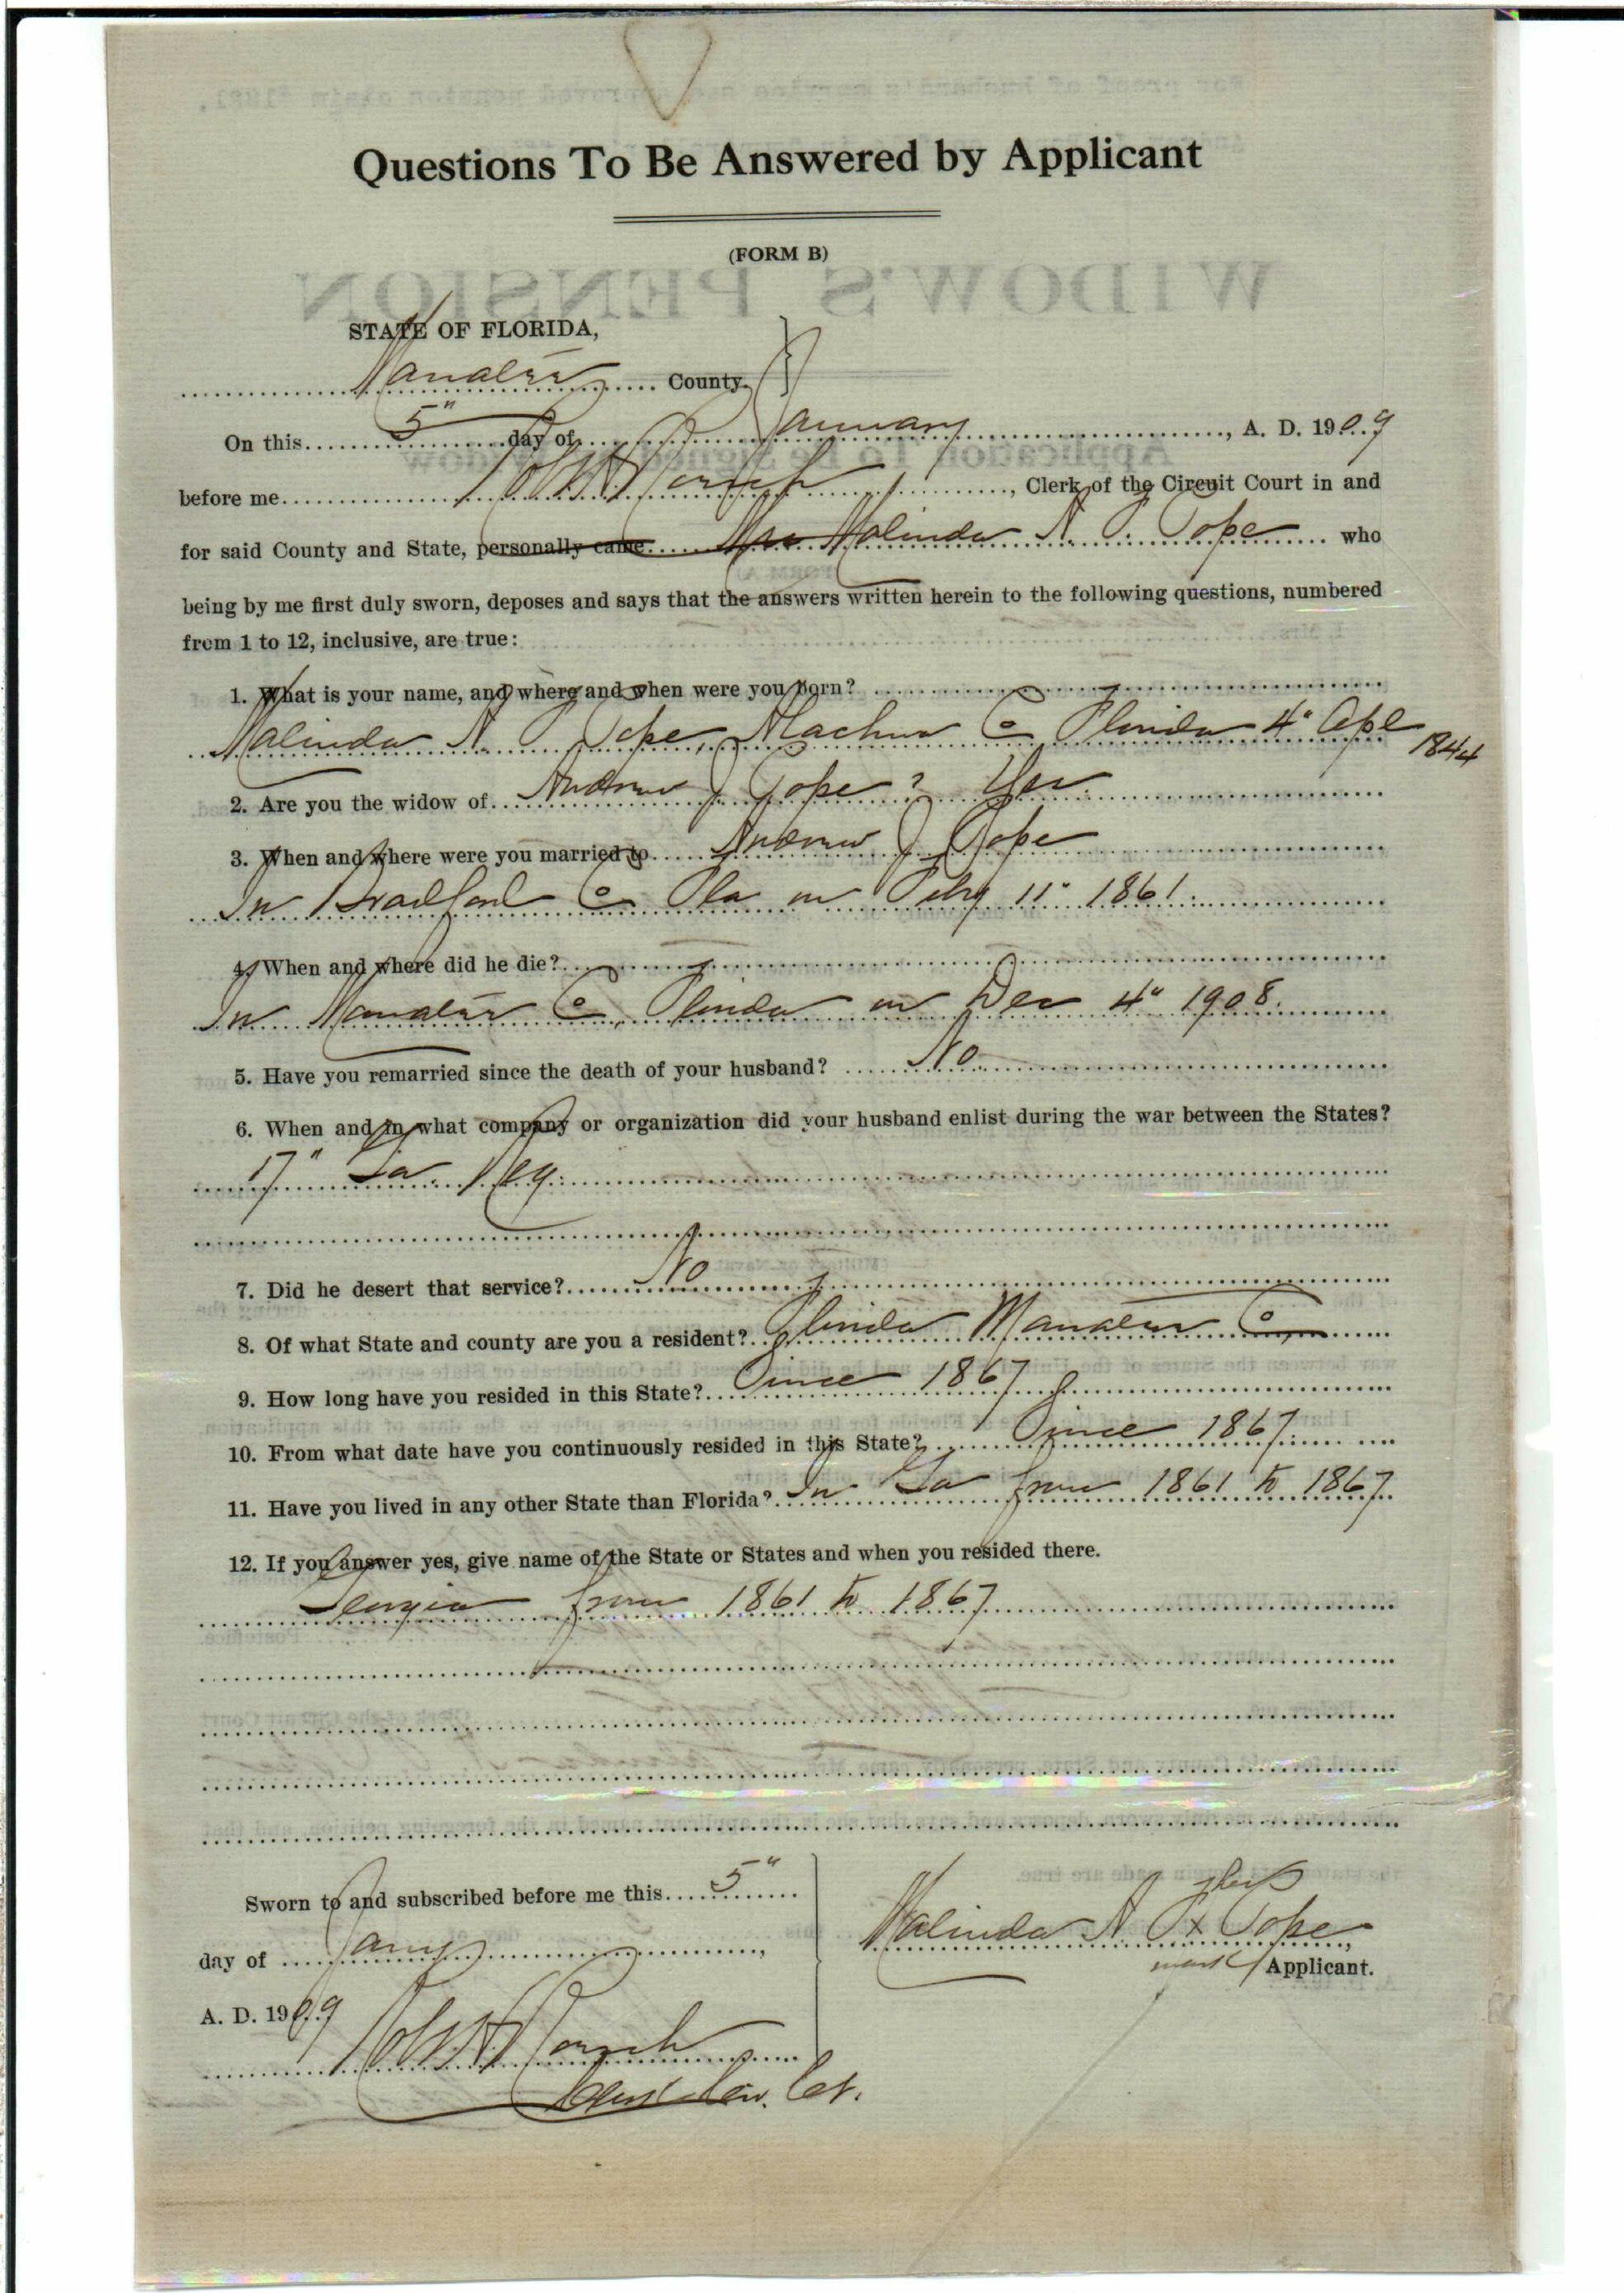 Questions To Be Answered by Applicant
(FORM B)
WIDOW'S PENSION
STATE OF FLORIDA,
Manatee County.
On this 5" day of January, A. D. 1909
before me Robt H Roesch, Clerk of the Circuit Court in and
for said County and State, personally came Mrs Malinda N. P. Pope who
being by me first duly sworn, deposes and says that the answers written herein to the following questions, numbered
from 1 to 12, inclusive, are true:
1. What is your name, and where and when were you born?
Malinda N. P. Pope, Alachua Co Florida 4" Apl 1844
2. Are you the widow of Andrew J Pope? Yes.
3. When and where were you married to Andrew J Pope
In Bradford Co Fla on Feby 11" 1861.
4. When and where did he die?
In Manatee Co, Florida on Dec 4" 1908.
5. Have you remarried since the death of your husband? No
6. When and in what company or organization did your husband enlist during the war between the States?
17" Ga. Reg.
7. Did he desert that service? No
8. Of what State and county are you a resident? Florida Manatee Co
9. How long have you resided in this State? Since 1867
10. From what date have you continuously resided in this State? Since 1867.
11. Have you lived in any other State than Florida? In Ga from 1861 to 1867.
12. If you answer yes, give name of the State or States and when you resided there.
Georgia from 1861 to 1867
Sworn to and subscribed before me this 5"
day of Jany,
A. D. 1909
Clerk Cir. Ct.
her
Malinda N P x Pope,
mark Applicant.